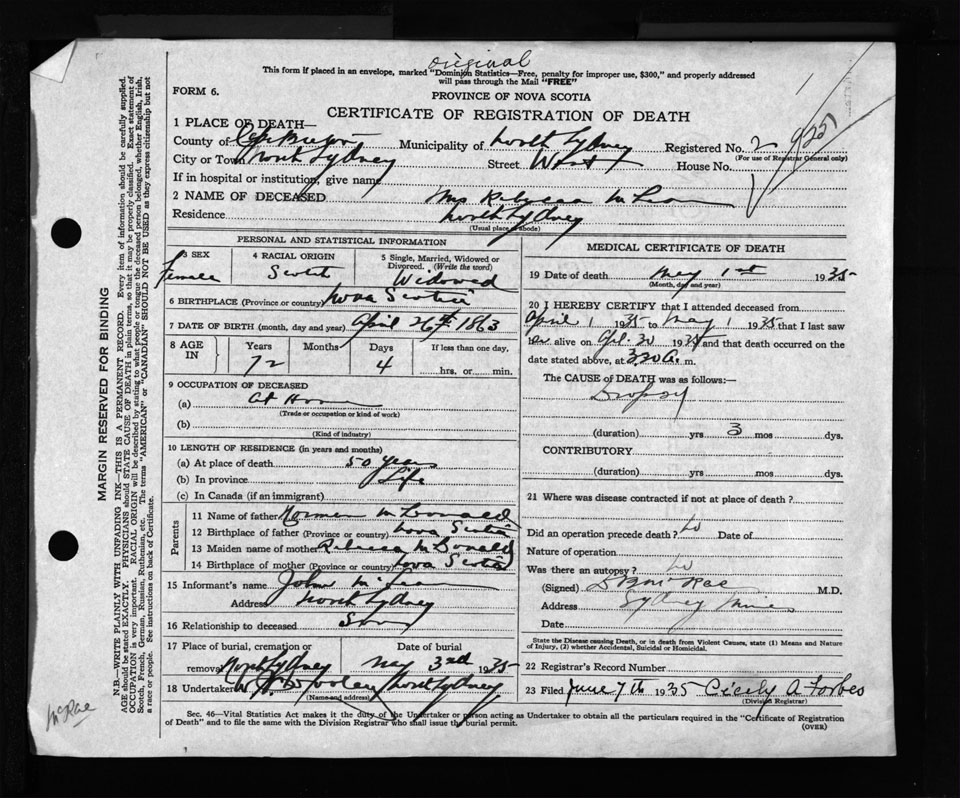 original
This form if placed in an envelope, marked "Dominion Statistics—Free, penalty for improper use, $300," and properly addressed
will pass through the Mail "FREE"
FORM 6.
PROVINCE OF NOVA SCOTIA
CERTIFICATE OF REGISTRATION OF DEATH
1 PLACE OF DEATH—
County of Cape Breton Municipality of North Sydney Registered No. 2
(For use of Registrar General only)
City or Town North Sydney Street West House No.
If in hospital or institution, give name
2 NAME OF DECEASED Mrs Rebecca McLean
Residence North Sydney
(Usual place of abode)
PERSONAL AND STATISTICAL INFORMATION
3 SEX
Female
4 RACIAL ORIGIN
Scotch
5 Single, Married, Widowed or
Divorced. (Write the word)
Widowed
6 BIRTHPLACE (Province or country) Nova Scotia
7 DATE OF BIRTH (month, day and year) April 26th 1863
8 AGE IN
Years
72
Months
Days
4
If less than one day,
hrs. or min.
9 OCCUPATION OF DECEASED
(a) At Home
(Trade or occupation or kind of work)
(b)
(Kind of industry)
10 LENGTH OF RESIDENCE (in years and months)
(a) At place of death 50 years
(b) In province Life
(c) In Canada (if an immigrant)
Parents
11 Name of father Norman McDonald
12 Birthplace of father (Province or country) Nova Scotia
13 Maiden name of mother Rebecca McDonald
14 Birthplace of mother (Province or country) Nova Scotia
15 Informant's name John McLean
Address North Sydney
16 Relationship to deceased Son
17 Place of burial, cremation or
removal North Sydney
Date of burial
May 3rd 1935
18 Undertaker North Sydney
(Name and address)
MEDICAL CERTIFICATE OF DEATH
19 Date of death May 1st 1935
(Month, day and year)
20 I HEREBY CERTIFY that I attended deceased from
April 1 1935 to May 1 1935 that I last saw
her alive on Apl. 30 1935 and that death occurred on the
date stated above, at 3.20 A. m.
The CAUSE of DEATH was as follows:—
Dropsy
(duration) yrs 3 mos dys.
CONTRIBUTORY
(duration) yrs mos dys.
21 Where was disease contracted if not at place of death?
Did an operation precede death? No Date of
Nature of operation
Was there an autopsy? No
(Signed) McRae M.D.
Address Sydney Mines
Date
State the Disease causing Death, or in death from Violent Causes, state (1) Means and Nature
of Injury, (2) whether Accidental, Suicidal or Homicidal.
22 Registrar's Record Number
23 Filed June 7th 1935 Cicely A Forbes
(Division Registrar)
Sec. 46—Vital Statistics Act makes it the duty of the Undertaker or person acting as Undertaker to obtain all the particulars required in the "Certificate of Registration
of Death" and to file the same with the Division Registrar who shall issue the burial permit.
(OVER)
MARGIN RESERVED FOR BINDING
N.B.—WRITE PLAINLY WITH UNFADING INK—THIS IS A PERMANENT RECORD. Every item of information should be carefully supplied.
AGE should be stated EXACTLY. PHYSICIANS should STATE CAUSE OF DEATH in plain terms, so that it may be properly classified. Exact statement of
OCCUPATION is very important. RACIAL ORIGIN will be described by stating to what people or tongue the deceased person belonged, whether English, Irish,
Scotch, French, German, Russian, Ruthenian, etc. The terms "AMERICAN" or "CANADIAN" SHOULD NOT BE USED as they express citizenship but not
a race or people. See instructions on back of Certificate.
McRae